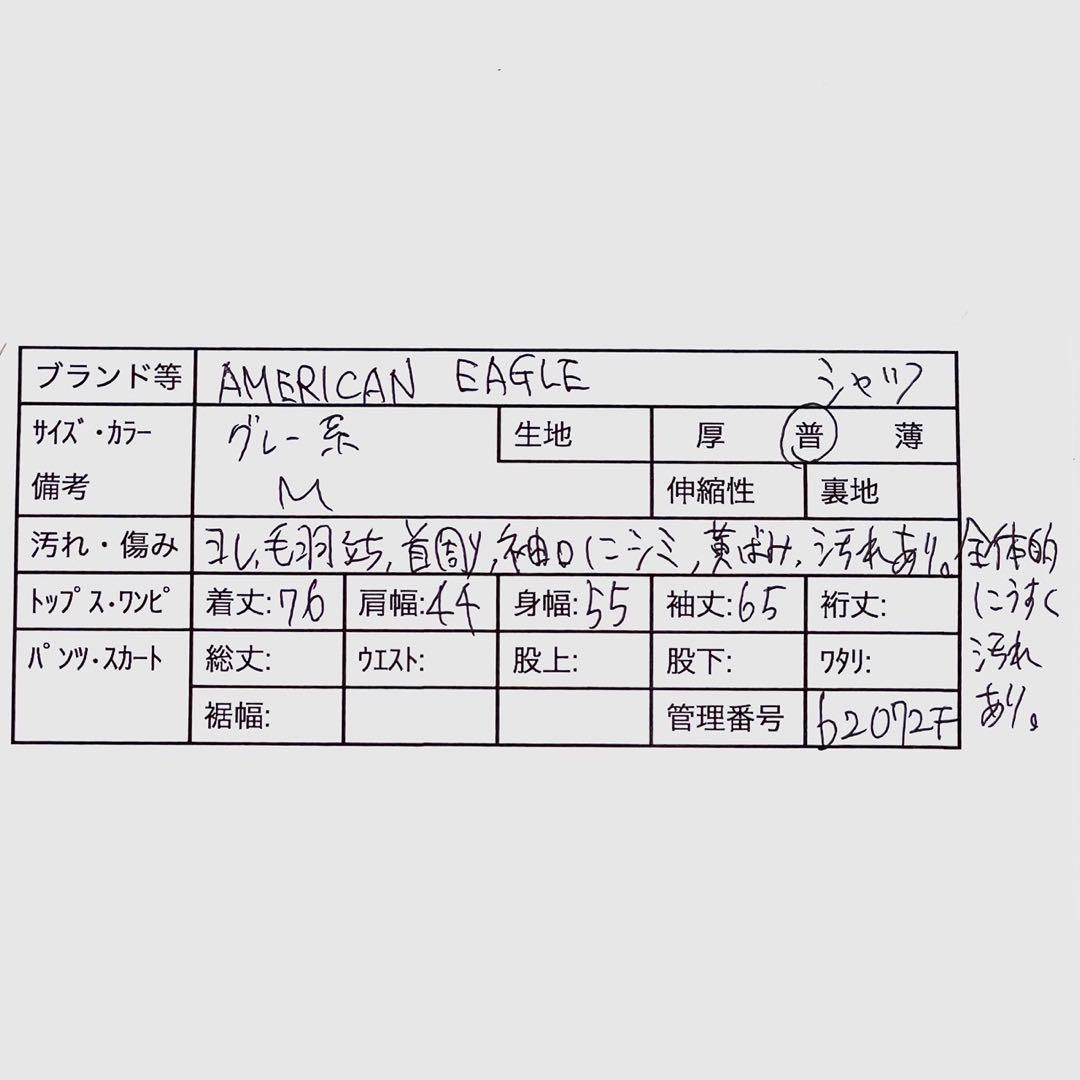 ブランド等 AMERICAN EAGLE シャツ
サイズ・カラー グレー系 生地 厚 普 薄
備考 M 伸縮性 裏地
汚れ・傷み ヨレ,毛羽立ち,首周り,袖口にシミ,黄ばみ,汚れあり。全体的
にうすく
汚れ
あり。
トップス・ワンピ 着丈:76 肩幅:44 身幅:55 袖丈:65 裄丈:
パンツ・スカート 総丈: ウエスト: 股上: 股下: ワタリ:
裾幅: 管理番号 62072F